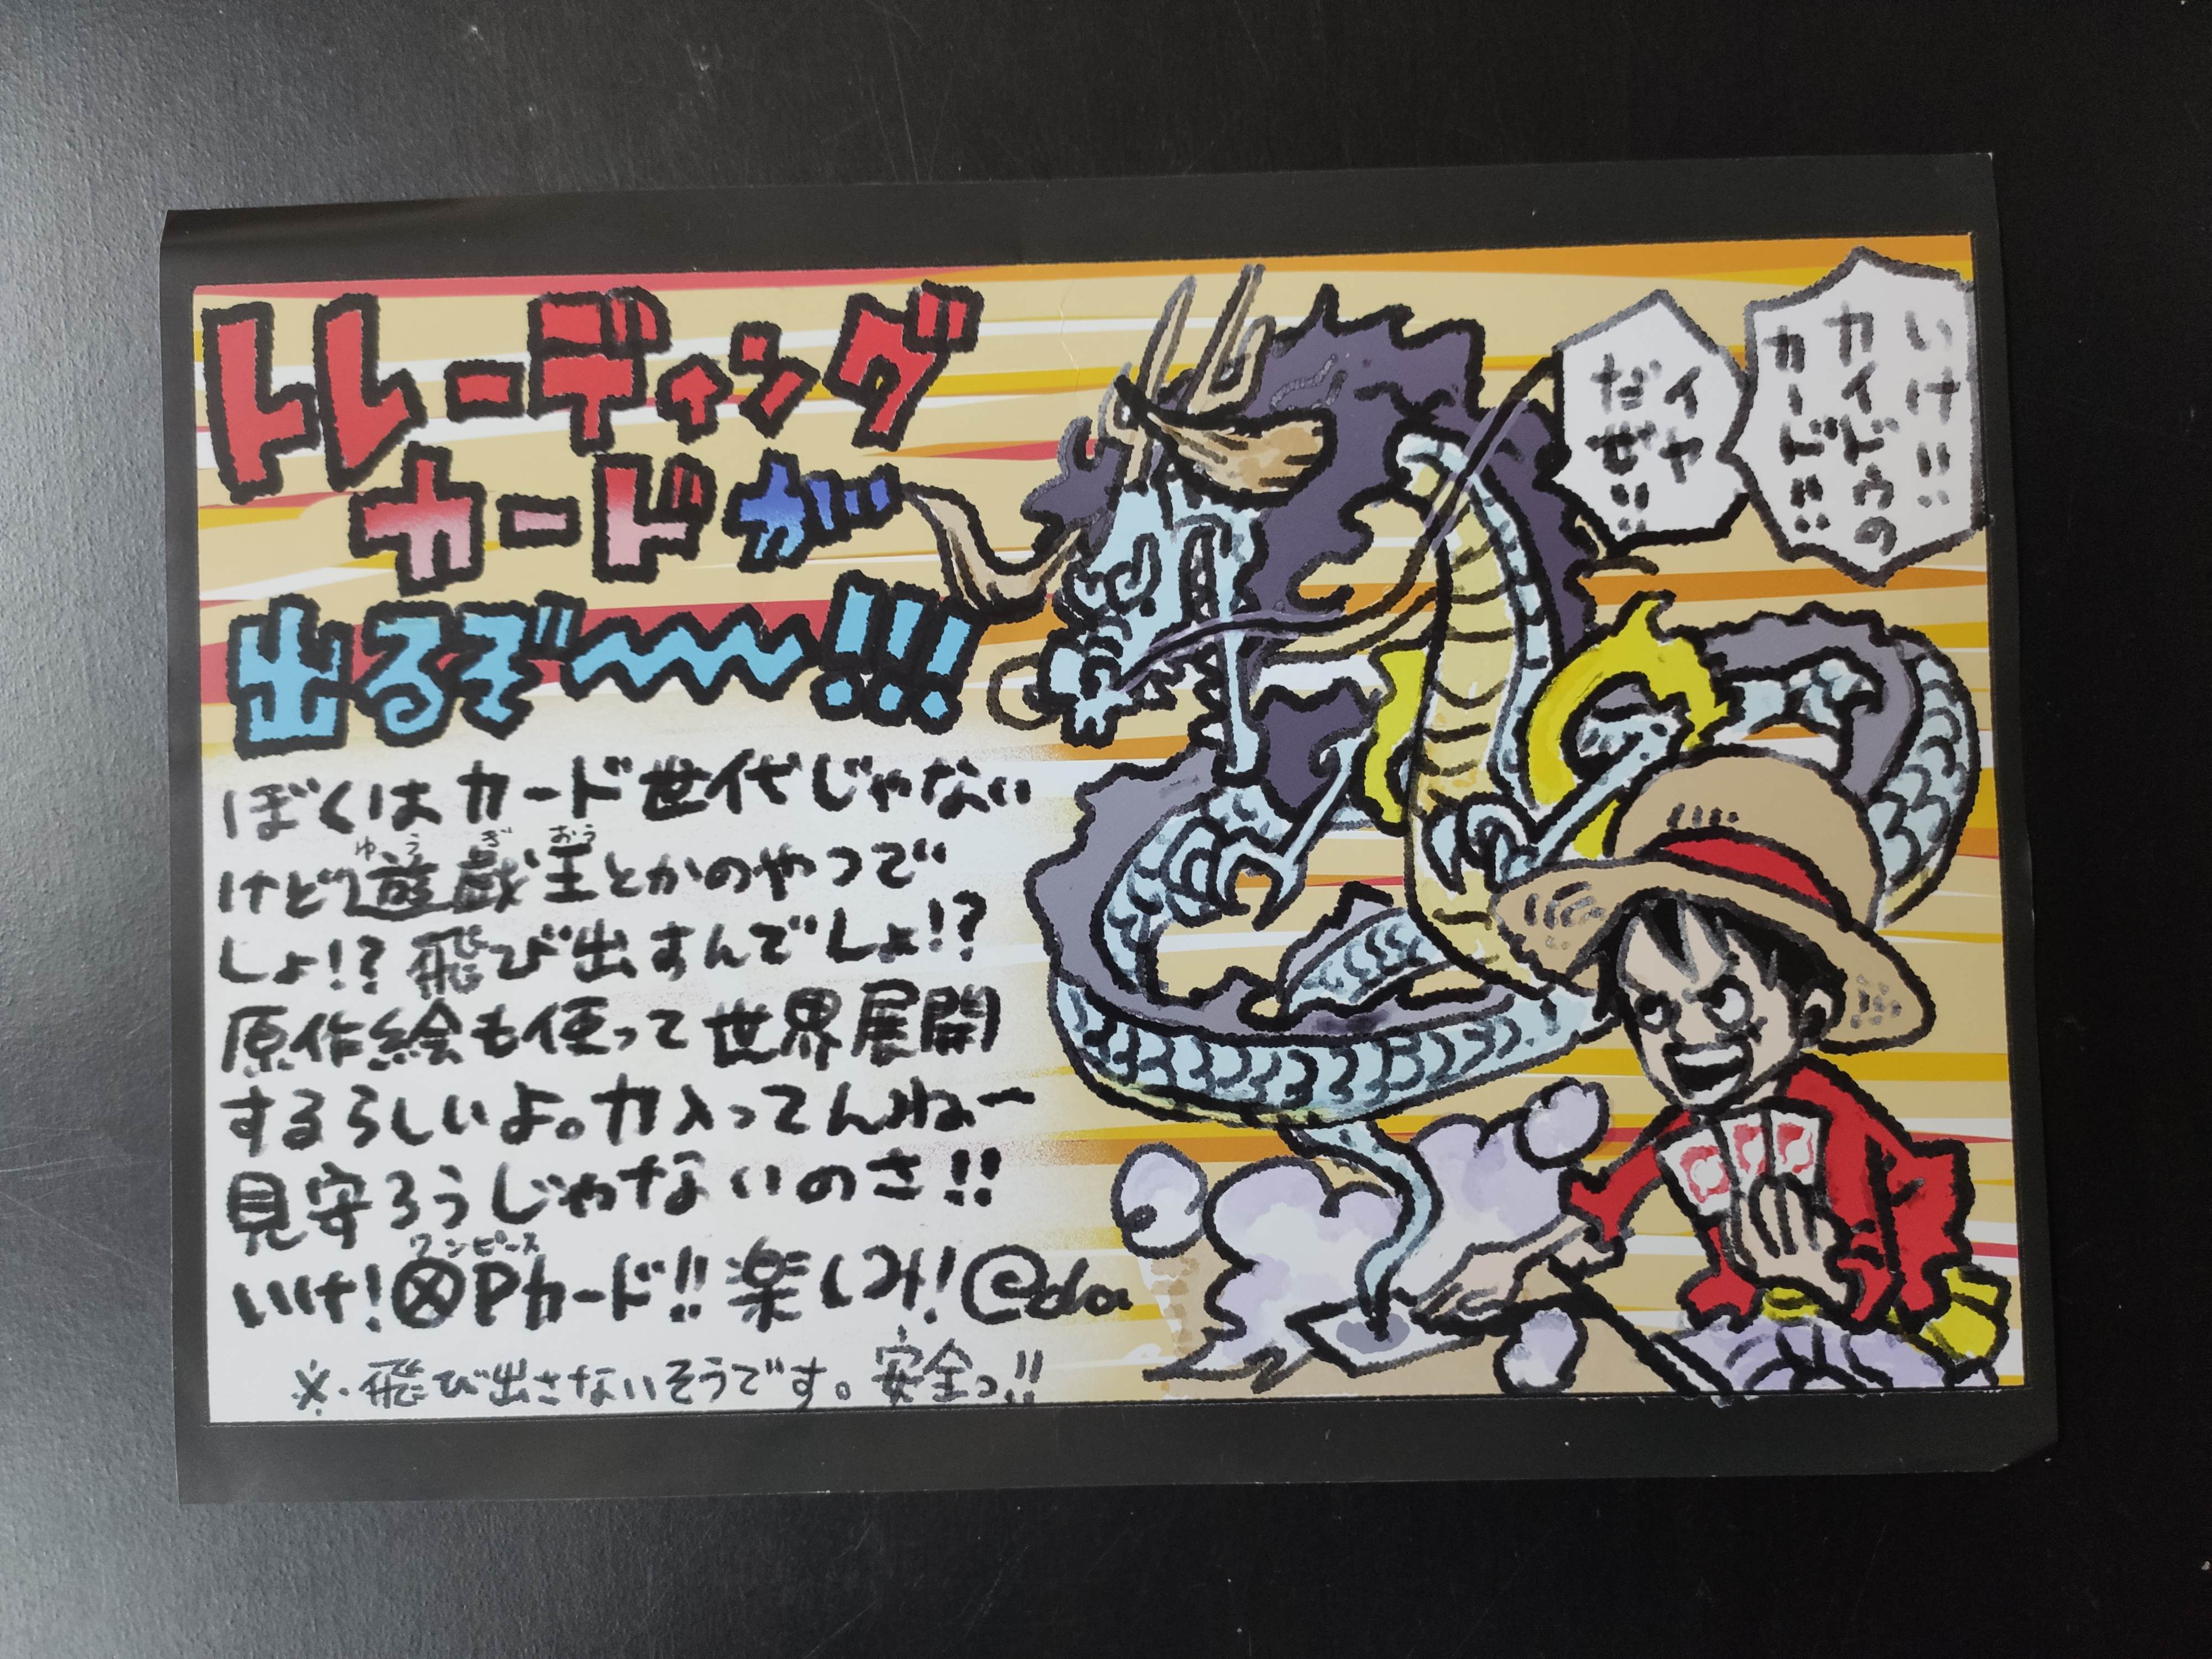 トレーディング
カードが…
出るぞ〜〜〜!!!
いけ!!
カイドウの
カード!!
イヤ
だぜ!!
ぼくはカード世代じゃない
けど遊戯王とかのやつで
ゆうぎおう
しょ!?飛び出すんでしょ!?
原作絵も使って世界展開
するらしいよ。力入ってんねー
見守ろうじゃないのさ!!
ワンピース
いけ!ⓍPカード!!楽しみ!@da
※.飛び出さないそうです。安全っ!!